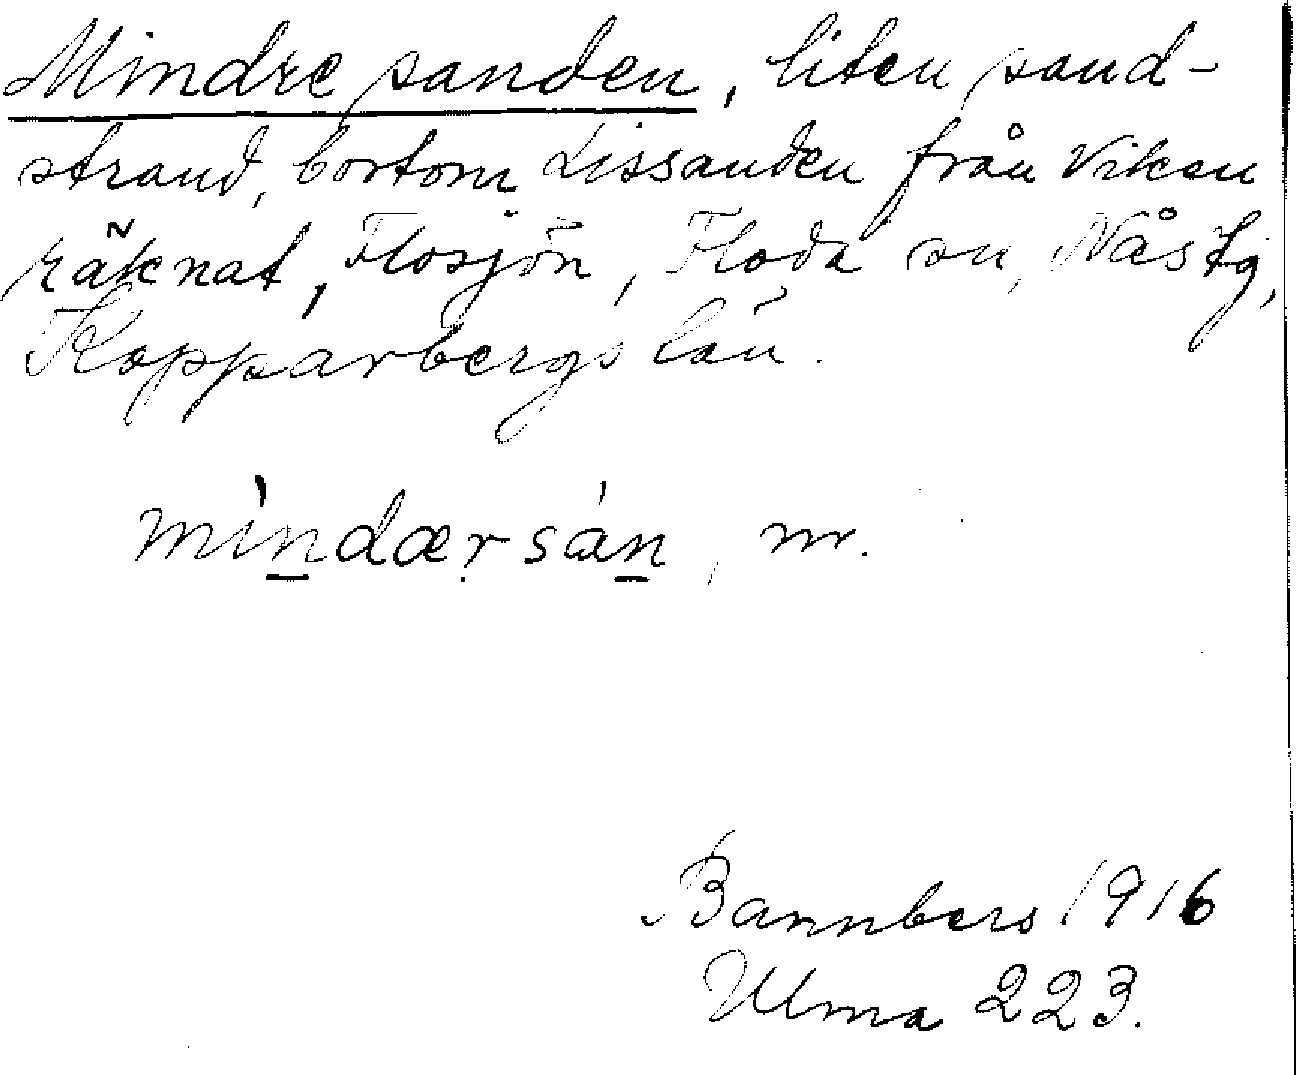 Mindre sanden, liten sand-
strand, bortom Lissanden från Viken
räknat, Flosjön, Floda sn, Nås tg,
Kopparbergs län.
mìndærsán, m.
Bannbers 1916
Ulma 223.